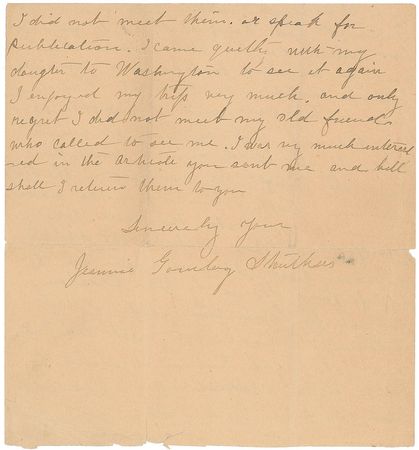 I did not meet them. or speak for
Publication. I came quietly with my
daugter to Washington to see it again
I enjoyed my trip very much. and only
regret I did not meet my old friends
who called to see me. I was very much interest
ed in the article you sent me and
shall I return them to you
Sincerely Your
Jeannie Gourlay Struthers